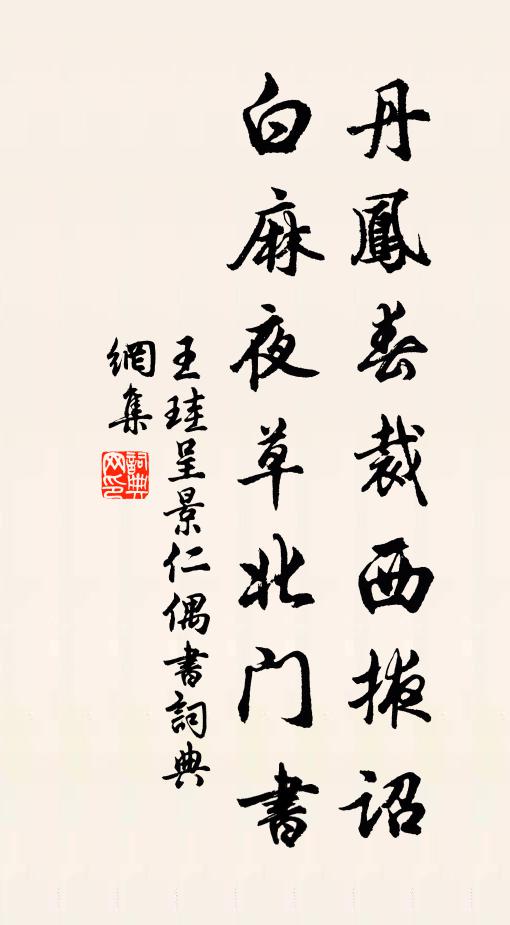 丹鳳春裁西掖詔
白麻夜草北门書
王珪呈景仁偶書詞典
網集
詞典
网印